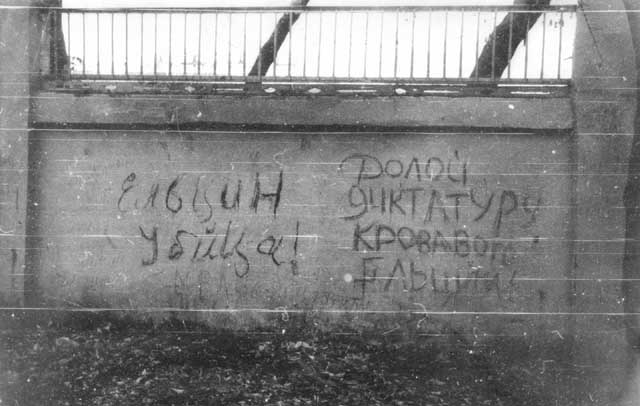 Ельцин
убийца!
Долой
диктатуру
кровавого
Ельцина